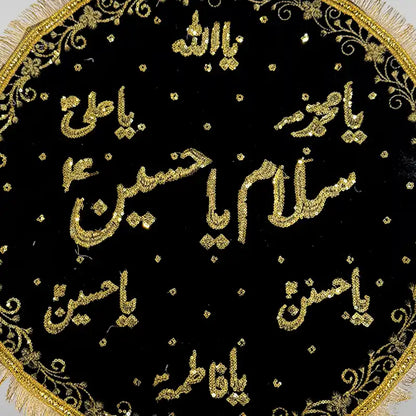 یا الله
یا محمد
یا علی
سلام یا حسین
یا حسن
یا حسین
یا فاطمه